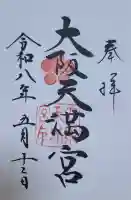 奉拝
大阪天満宮
令和八年五月十二日